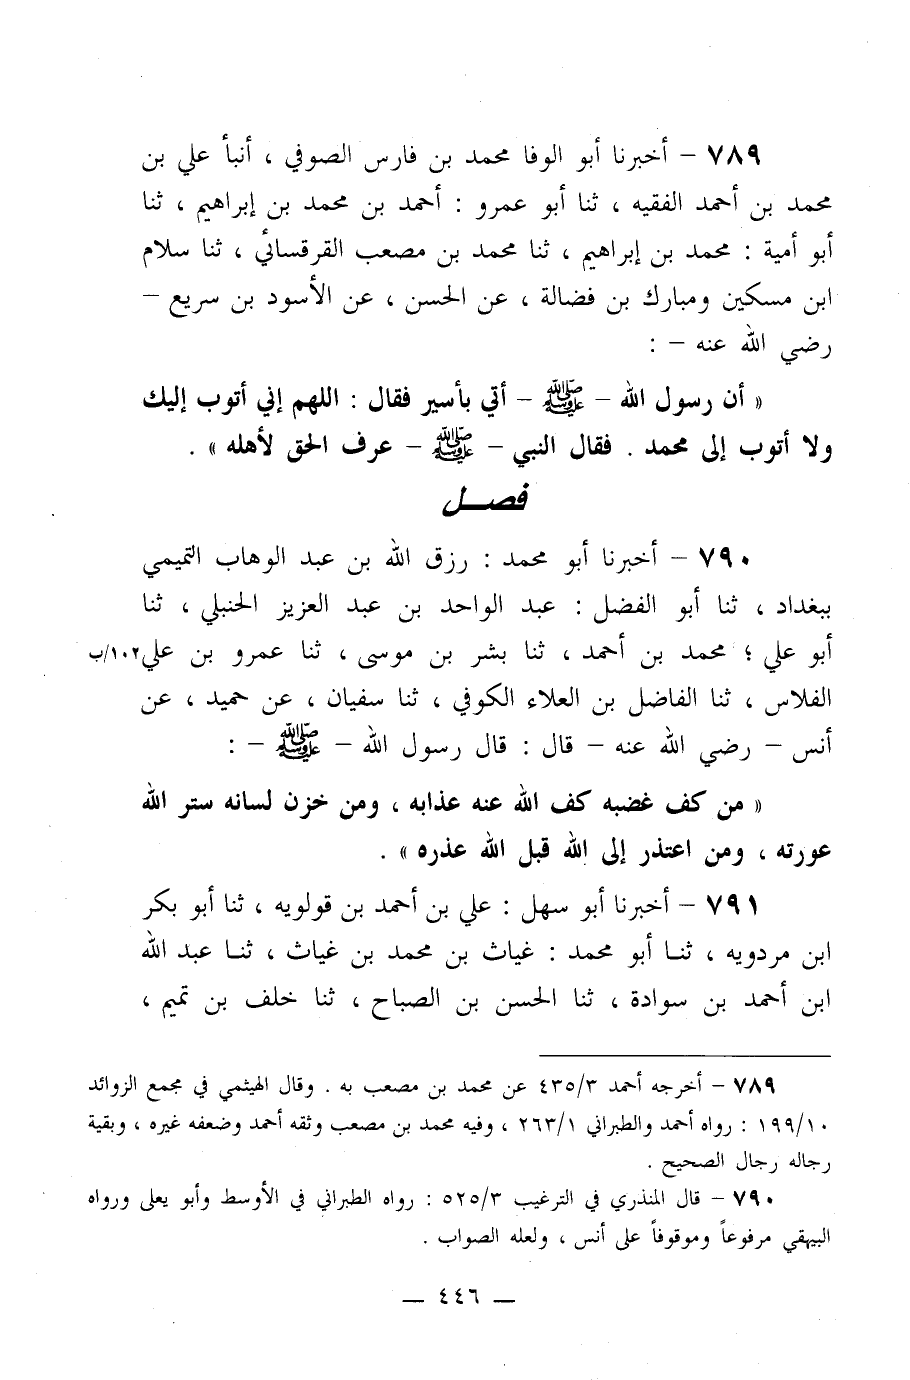 ٧٨٩ – أخبرنا أبو الوفا محمد بن فارس الصوفي ، أنبأ علي بن
محمد بن أحمد الفقيه ، ثنا أبو عمرو : أحمد بن محمد بن إبراهيم ، ثنا
أبو أمية : محمد بن إبراهيم ، ثنا محمد بن مصعب القرقسائي ، ثنا سلام
ابن مسكين ومبارك بن فضالة ، عن الحسن ، عن الأسود بن سريع –
رضي الله عنه – :
« أن رسول الله – ﷺ – أتي بأسير فقال : اللهم إني أتوب إليك
ولا أتوب إلى محمد . فقال النبي – ﷺ – عرف الحق لأهله » .
فصـــل
٧٩٠ – أخبرنا أبو محمد : رزق الله بن عبد الوهاب التميمي
ببغداد ، ثنا أبو الفضل : عبد الواحد بن عبد العزيز الحنبلي ، ثنا
أبو علي ؛ محمد بن أحمد ، ثنا بشر بن موسى ، ثنا عمرو بن علي ١٠٢/ب
الفلاس ، ثنا الفاضل بن العلاء الكوفي ، ثنا سفيان ، عن حميد ، عن
أنس – رضي الله عنه – قال : قال رسول الله – ﷺ – :
« من كف غضبه كف الله عنه عذابه ، ومن خزن لسانه ستر الله
عورته ، ومن اعتذر إلى الله قبل الله عذره » .
٧٩١ – أخبرنا أبو سهل : علي بن أحمد بن قولويه ، ثنا أبو بكر
ابن مردويه ، ثنـا أبو محمد : غياث بن محمد بن غياث ، ثنـا عبد الله
ابن أحمد بن سوادة ، ثنا الحسن بن الصباح ، ثنا خلف بن تميم ،
٧٨٩ – أخرجه أحمد ٤٣٥/٣ عن محمد بن مصعب به . وقال الهيثمي في مجمع الزوائد
١٩٩/١٠ : رواه أحمد والطبراني ٢٦٣/١ ، وفيه محمد بن مصعب وثقه أحمد وضعفه غيره ، وبقية
رجاله رجال الصحيح .
٧٩٠ – قال المنذري في الترغيب ٥٢٥/٣ : رواه الطبراني في الأوسط وأبو يعلى ورواه
البيهقي مرفوعاً وموقوفاً على أنس ، ولعله الصواب .
— ٤٤٦ —